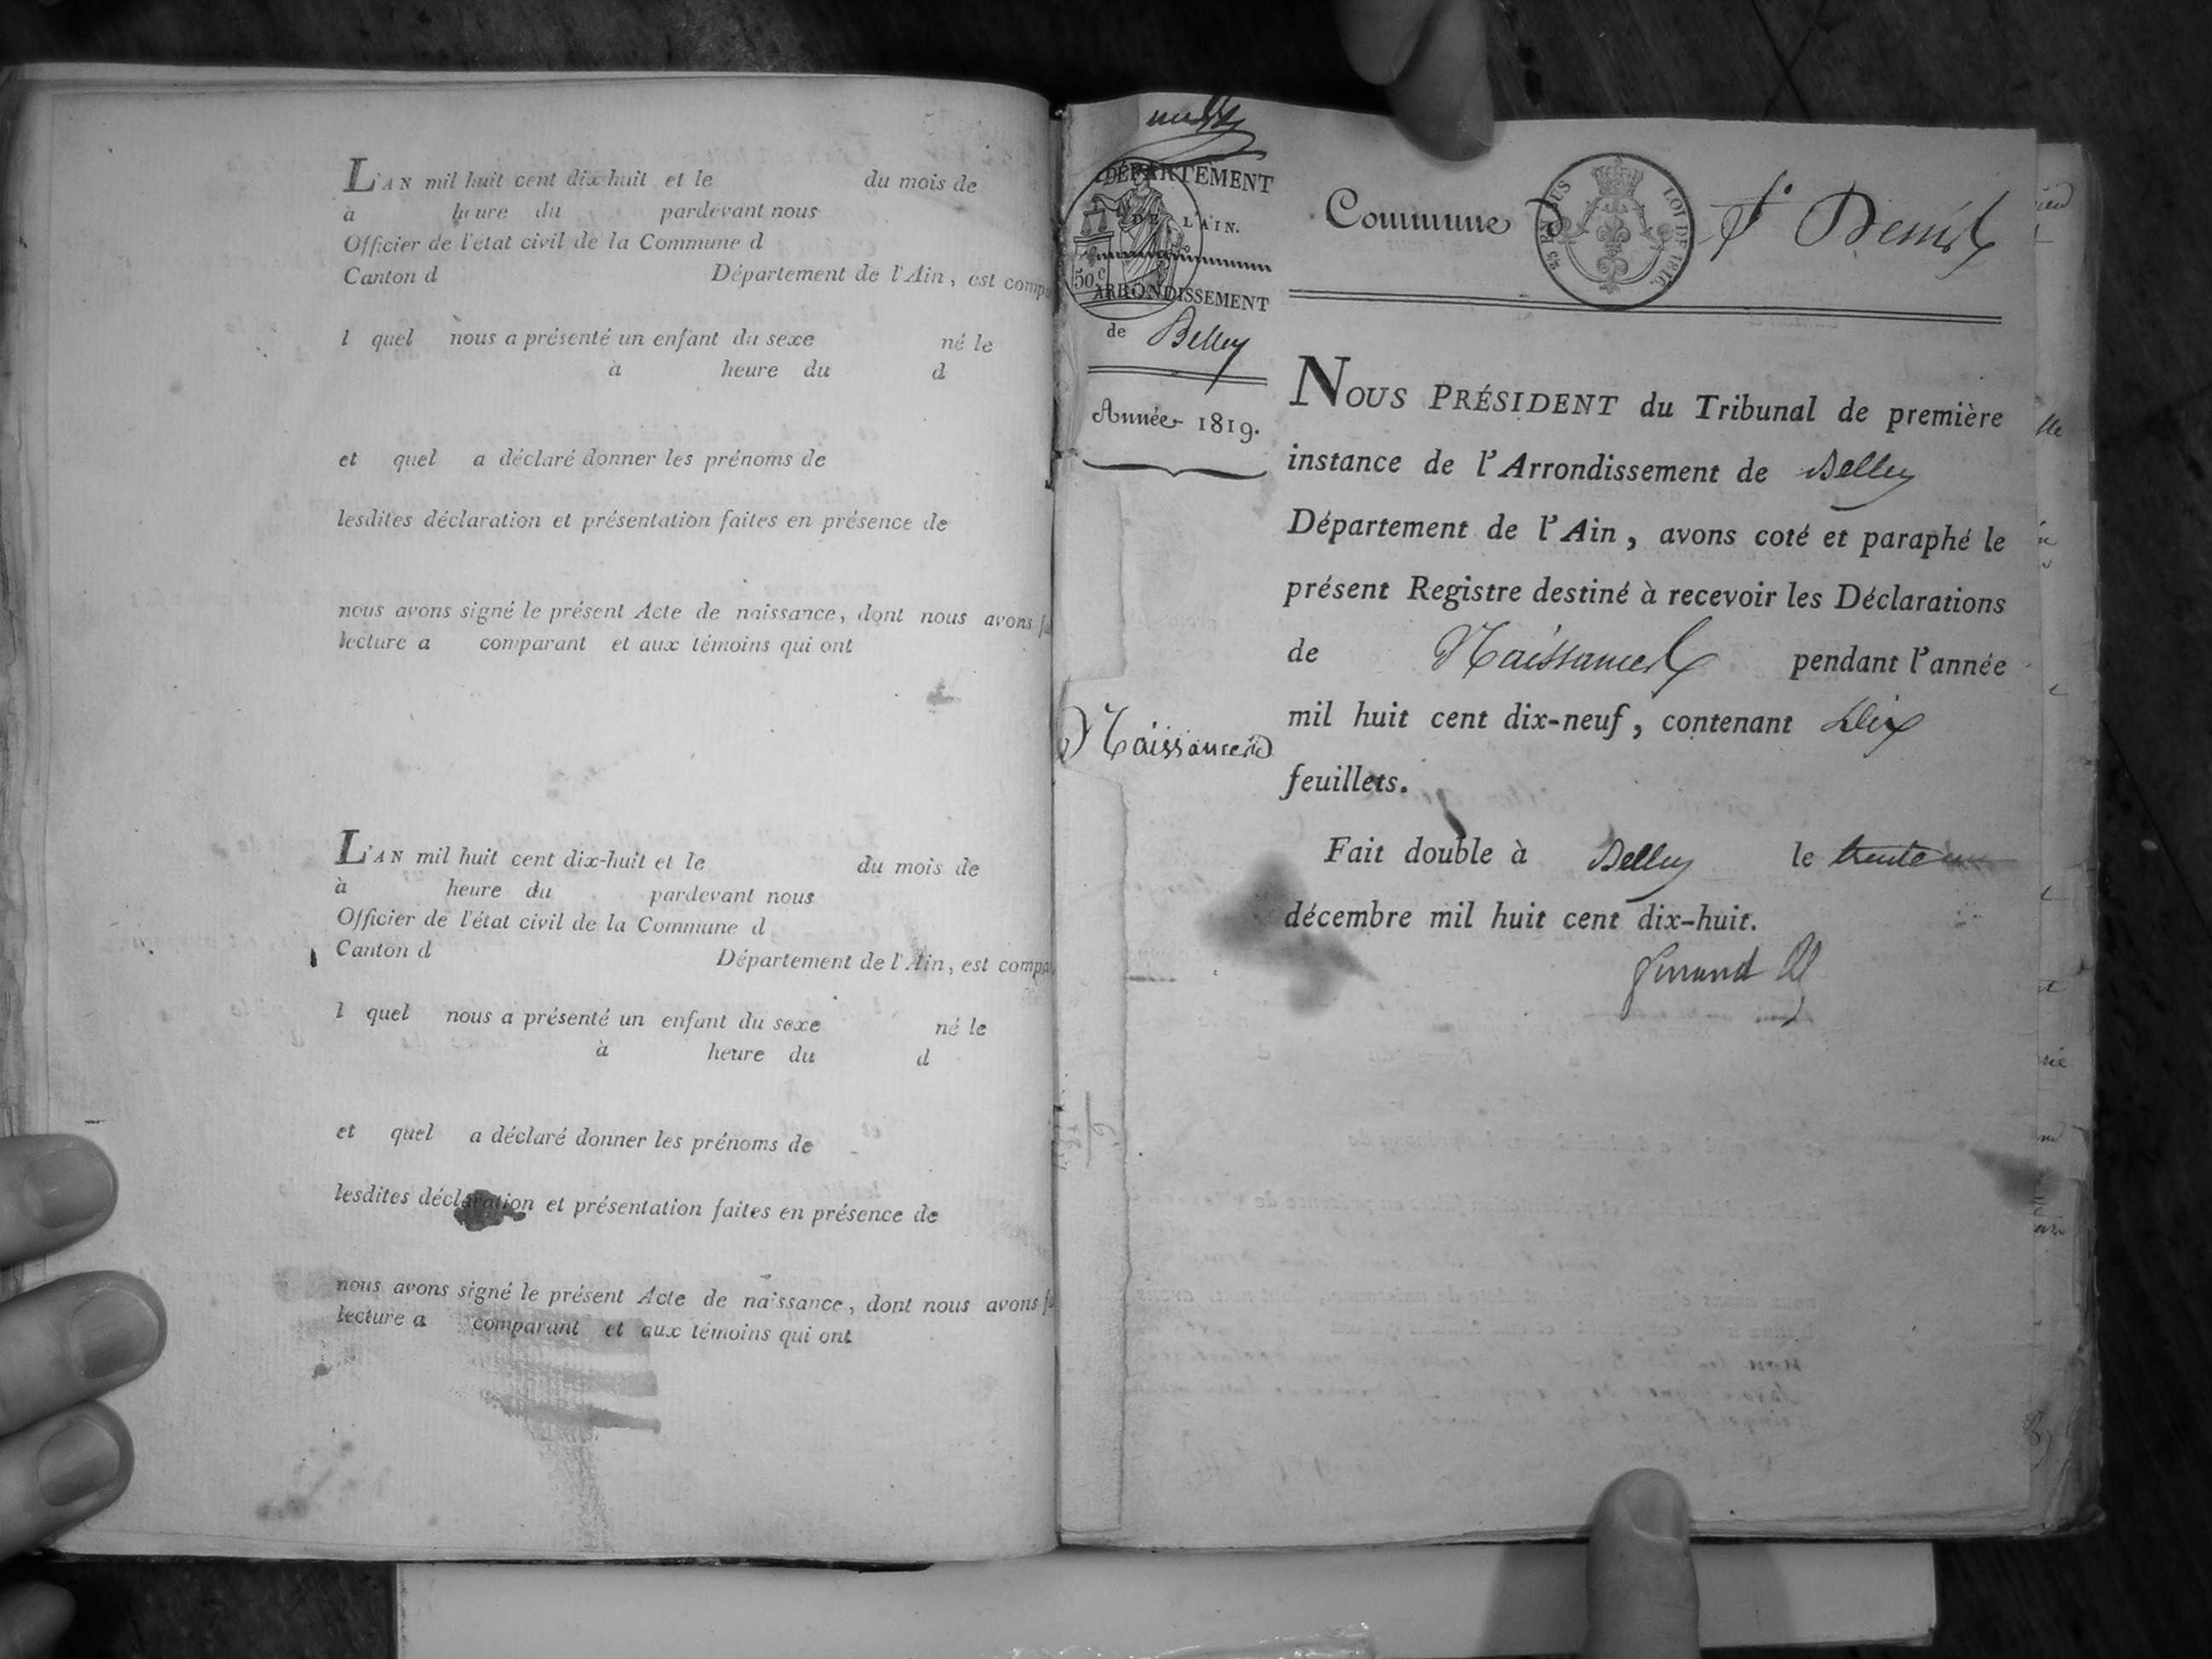 L'AN mil huit cent dix-huit et le du mois de
à heure du pardevant nous
Officier de l'état civil de la Commune d
Canton d Département de l'Ain, est comp
l quel nous a présenté un enfant du sexe né le
à heure du d
et quel a déclaré donner les prénoms de
lesdites déclaration et présentation faites en présence de
nous avons signé le présent Acte de naissance, dont nous avons f
lecture a comparant et aux témoins qui ont
L'AN mil huit cent dix-huit et le du mois de
à heure du pardevant nous
Officier de l'état civil de la Commune d
Canton d Département de l'Ain, est compa
l quel nous a présenté un enfant du sexe né le
à heure du d
et quel a déclaré donner les prénoms de
lesdites déclaration et présentation faites en présence de
nous avons signé le présent Acte de naissance, dont nous avons f
lecture a comparant et aux témoins qui ont
DÉPARTEMENT
DE L'AIN.
50 c
ARRONDISSEMENT
de Belley
Année 1819.
Naissances
Commune d St Denis
LOI DE 1816.
NOUS PRÉSIDENT du Tribunal de première
instance de l'Arrondissement de Belley
Département de l'Ain, avons coté et paraphé le
présent Registre destiné à recevoir les Déclarations
de Naissances pendant l'année
mil huit cent dix-neuf, contenant Dix
feuillets.
Fait double à Belley le trente un
décembre mil huit cent dix-huit.